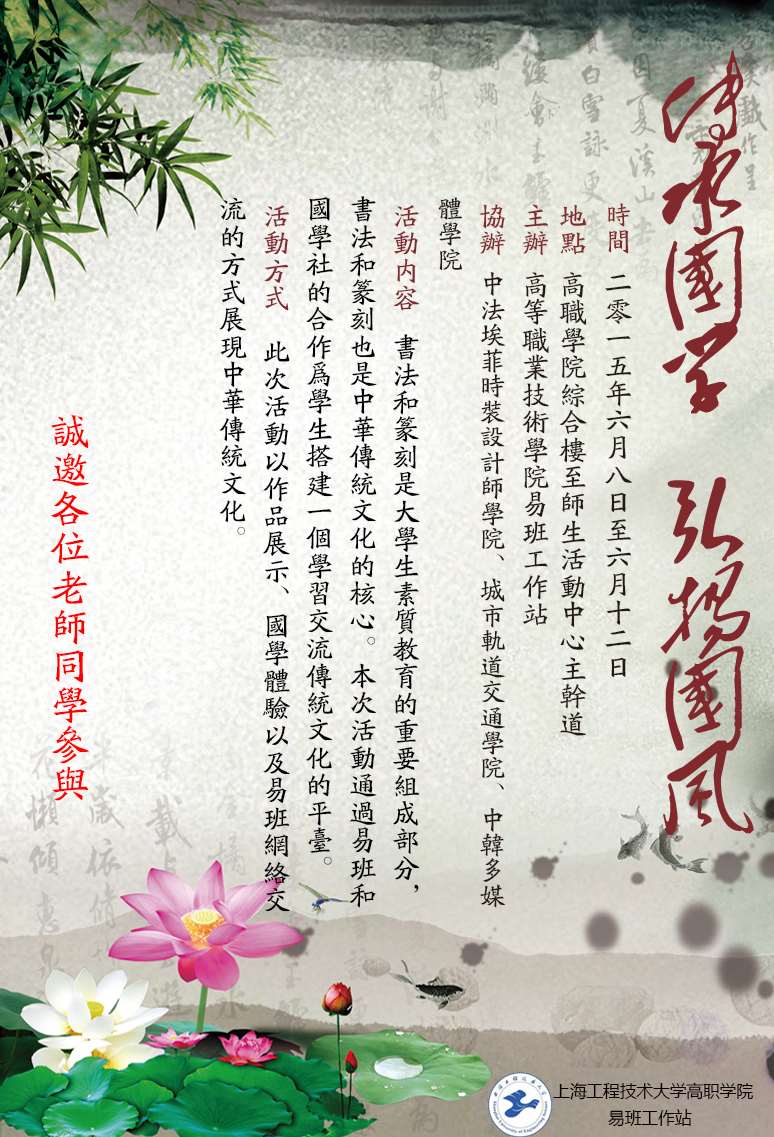 传承國学 弘揚國风
時間 二零一五年六月八日至六月十二日
地點 高職學院綜合樓至師生活動中心主幹道
主辦 高等職業技術學院易班工作站
協辦 中法埃菲時裝設計師學院、城市軌道交通學院、中韓多媒
體學院
活動内容 書法和篆刻是大學生素質教育的重要組成部分，
書法和篆刻也是中華傳統文化的核心。本次活動通過易班和
國學社的合作爲學生搭建一個學習交流傳統文化的平臺。
活動方式 此次活動以作品展示、國學體驗以及易班網絡交
流的方式展現中華傳統文化。
誠邀各位老師同學參與
上海工程技术大学高职学院
易班工作站